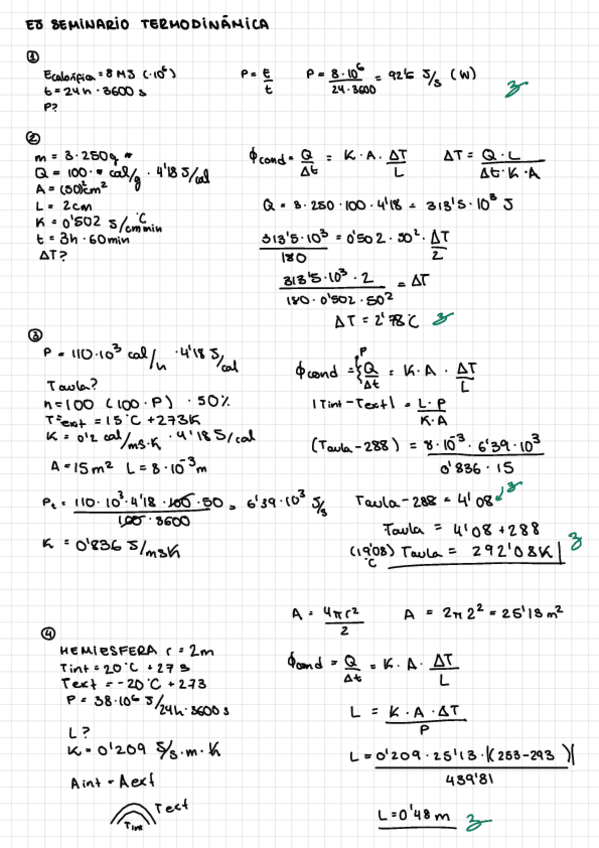 EJ SEMINARIO TERMODINÂMICA
①
Ecalorífica = 8 MJ (·10⁶)
t = 24h · 3600 s
P?
P = E/t
P = 8·10⁶/24·3600 = 92'6 J/s (W)
②
m = 3·250g
Q = 100 · cal/g · 4'18 J/cal
A = (50)²cm²
L = 2cm
K = 0'502 J/cm min °C
t = 3h · 60min
ΔT?
ϕcond = Q/Δt = K · A · ΔT/L
ΔT = Q · L/Δt · K · A
Q = 3 · 250 · 100 · 4'18 = 313'5 · 10³ J
313'5 · 10³/180 = 0'502 · 50² · ΔT/2
313'5 · 10³ · 2/180 · 0'502 · 50² = ΔT
ΔT = 2'78°C
③
P = 110·10³ cal/h · 4'18 J/cal
Taula?
n = 100 (100 · P) · 50%
Text = 15°C + 273K
K = 0'2 cal/ms·K · 4'18 J/cal
A = 15m² L = 8·10⁻³m
Pt = 110·10³·4'18·100·50/100·3600 = 6'39·10³ J/s
K = 0'836 J/msK
P
ϕcond = Q/Δt = K · A · ΔT/L
|Tint - Text| = L · P/K · A
(Taula - 288) = 8·10⁻³ · 6'39·10³/0'836 · 15
Taula - 288 = 4'08
Taula = 4'08 + 288
(19'08) °C Taula = 292'08K
④
HEMIESFERA r = 2m
Tint = 20°C + 273
Text = -20°C + 273
P = 38·10⁶ J/24h·3600s
L?
K = 0'209 J/s·m·K
Aint = Aext
Text
Tint
A = 4πr²/2
A = 2π2² = 25'13 m²
ϕcond = Q/Δt = K · A · ΔT/L
L = K · A · ΔT/P
L = 0'209 · 25'13 · |(253-293)|/439'81
L = 0'48 m